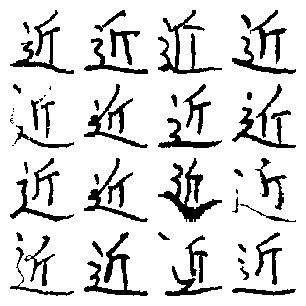 近近近近
近近近近
近近近近
近近近近